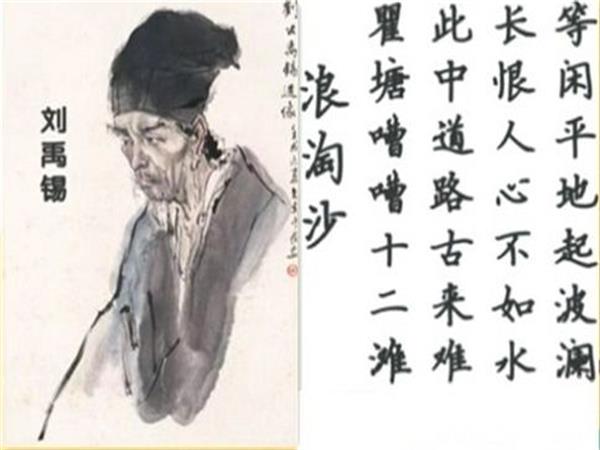 刘禹锡
劉公禹锡造像
浪淘沙
瞿塘嘈嘈十二滩
此中道路古来难
长恨人心不如水
等闲平地起波澜